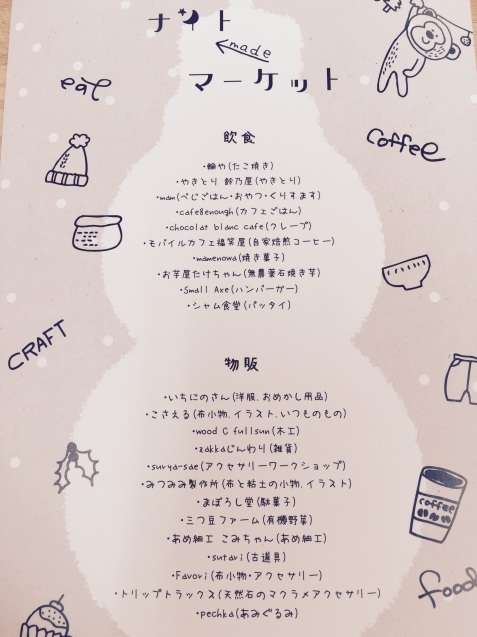 ナイト
made
マーケット
eat
coffee
飲食
・輪や(たこ焼き)
・やきとり 鈴乃屋(やきとり)
・mam(べじごはん・おやつ・くりすます)
・cafe&enough(カフェごはん)
・chocolat blanc cafe(クレープ)
・モバイルカフェ福笑屋(自家焙煎コーヒー)
・mamenowa(焼き菓子)
・お芋屋たけちゃん(無農薬石焼き芋)
・Small Axe(ハンバーガー)
・シャム食堂(パッタイ)
CRAFT
物販
・いちにのさん(洋服、おめかし用品)
・こさえる(布小物、イラスト、いつものもの)
・wood C fullsun(木工)
・zakkaじんわり(雑貨)
・surya-sae(アクセサリーワークショップ)
・みつみみ製作所(布と粘土の小物、イラスト)
・まぼろし堂(駄菓子)
・三つ豆ファーム(有機野菜)
・あめ細工 こみちゃん(あめ細工)
・sutari(古道具)
・Favori(布小物・アクセサリー)
・トリップトラックス(天然石のマクラメアクセサリー)
・pechka(あみぐるみ)
coffee
food